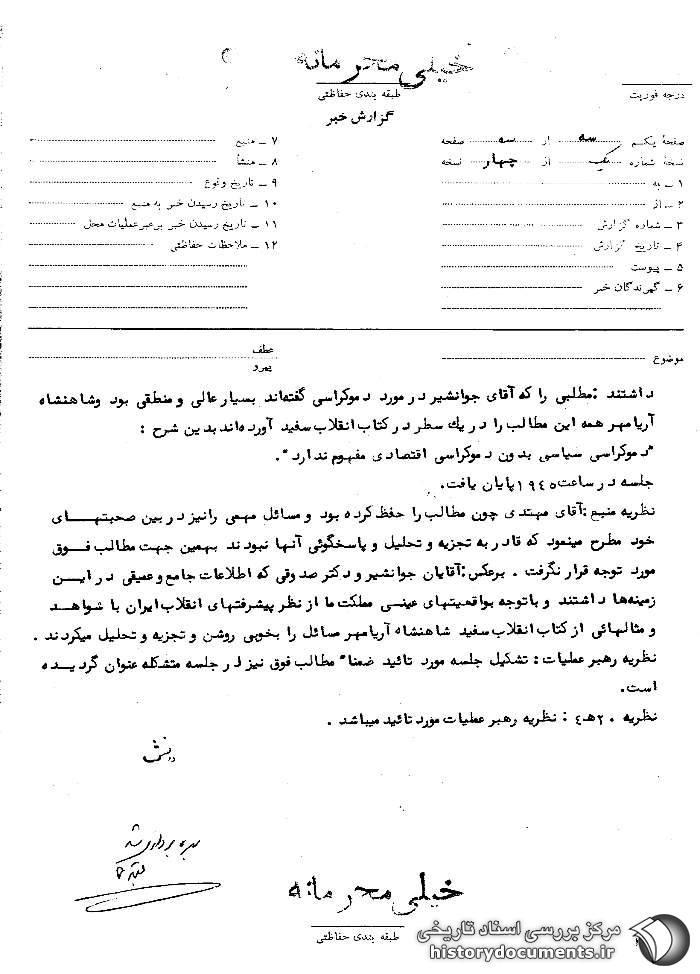 خیلی محرمانه
طبقه بندی حفاظتی
درجه فوریت
گزارش خبر
صفحهٔ یکم سه از سه صفحه
نسخهٔ شماره یک از چهار نسخه
۱ ـ به
۲ ـ از
۳ ـ شماره گزارش
۴ ـ تاریخ گزارش
۵ ـ پیوست
۶ ـ گیرندگان خبر
۷ ـ منبع
۸ ـ منشأ
۹ ـ تاریخ وقوع
۱۰ ـ تاریخ رسیدن خبر به منبع
۱۱ ـ تاریخ رسیدن خبر برهبر عملیات محل
۱۲ ـ ملاحظات حفاظتی
موضوع
عطف
پیرو
داشتند :مطلبی را که آقای جوانشیر در مورد دموکراسی گفته‌اند بسیار عالی و منطقی بود و شاهنشاه
آریامهر همه این مطالب را در یك سطر در کتاب انقلاب سفید آورده‌اند بدین شرح :
"دموکراسی سیاسی بدون دموکراسی اقتصادی مفهوم ندارد".
جلسه در ساعت ۱۹۴۵ پایان یافت.
نظریه منبع :آقای مهتدی چون مطالب را حفظ کرده بود و مسائل مهمی رانیز در بین صحبتهای
خود مطرح مینمود که قادر به تجزیه و تحلیل و پاسخگوئی آنها نبودند بهمین جهت مطالب فوق
مورد توجه قرار نگرفت . برعکس :آقایان جوانشیر و دکتر صدوقی که اطلاعات جامع و عمیقی در این
زمینه‌ها داشتند و باتوجه بواقعیتهای عینی مملکت ما از نظر پیشرفتهای انقلاب ایران با شواهد
و مثالهائی از کتاب انقلاب سفید شاهنشاه آریامهر مسائل را بخوبی روشن و تجزیه و تحلیل میکردند .
نظریه رهبر عملیات : تشکیل جلسه مورد تائید ضمنا" مطالب فوق نیز در جلسه متشکله عنوان گردیده
است.
نظریه ۲۰هـ۴ : نظریه رهبر عملیات مورد تائید میباشد .
بهره برداری شد
خیلی محرمانه
طبقه بندی حفاظتی
مرکز بررسی اسناد تاریخی
historydocuments.ir